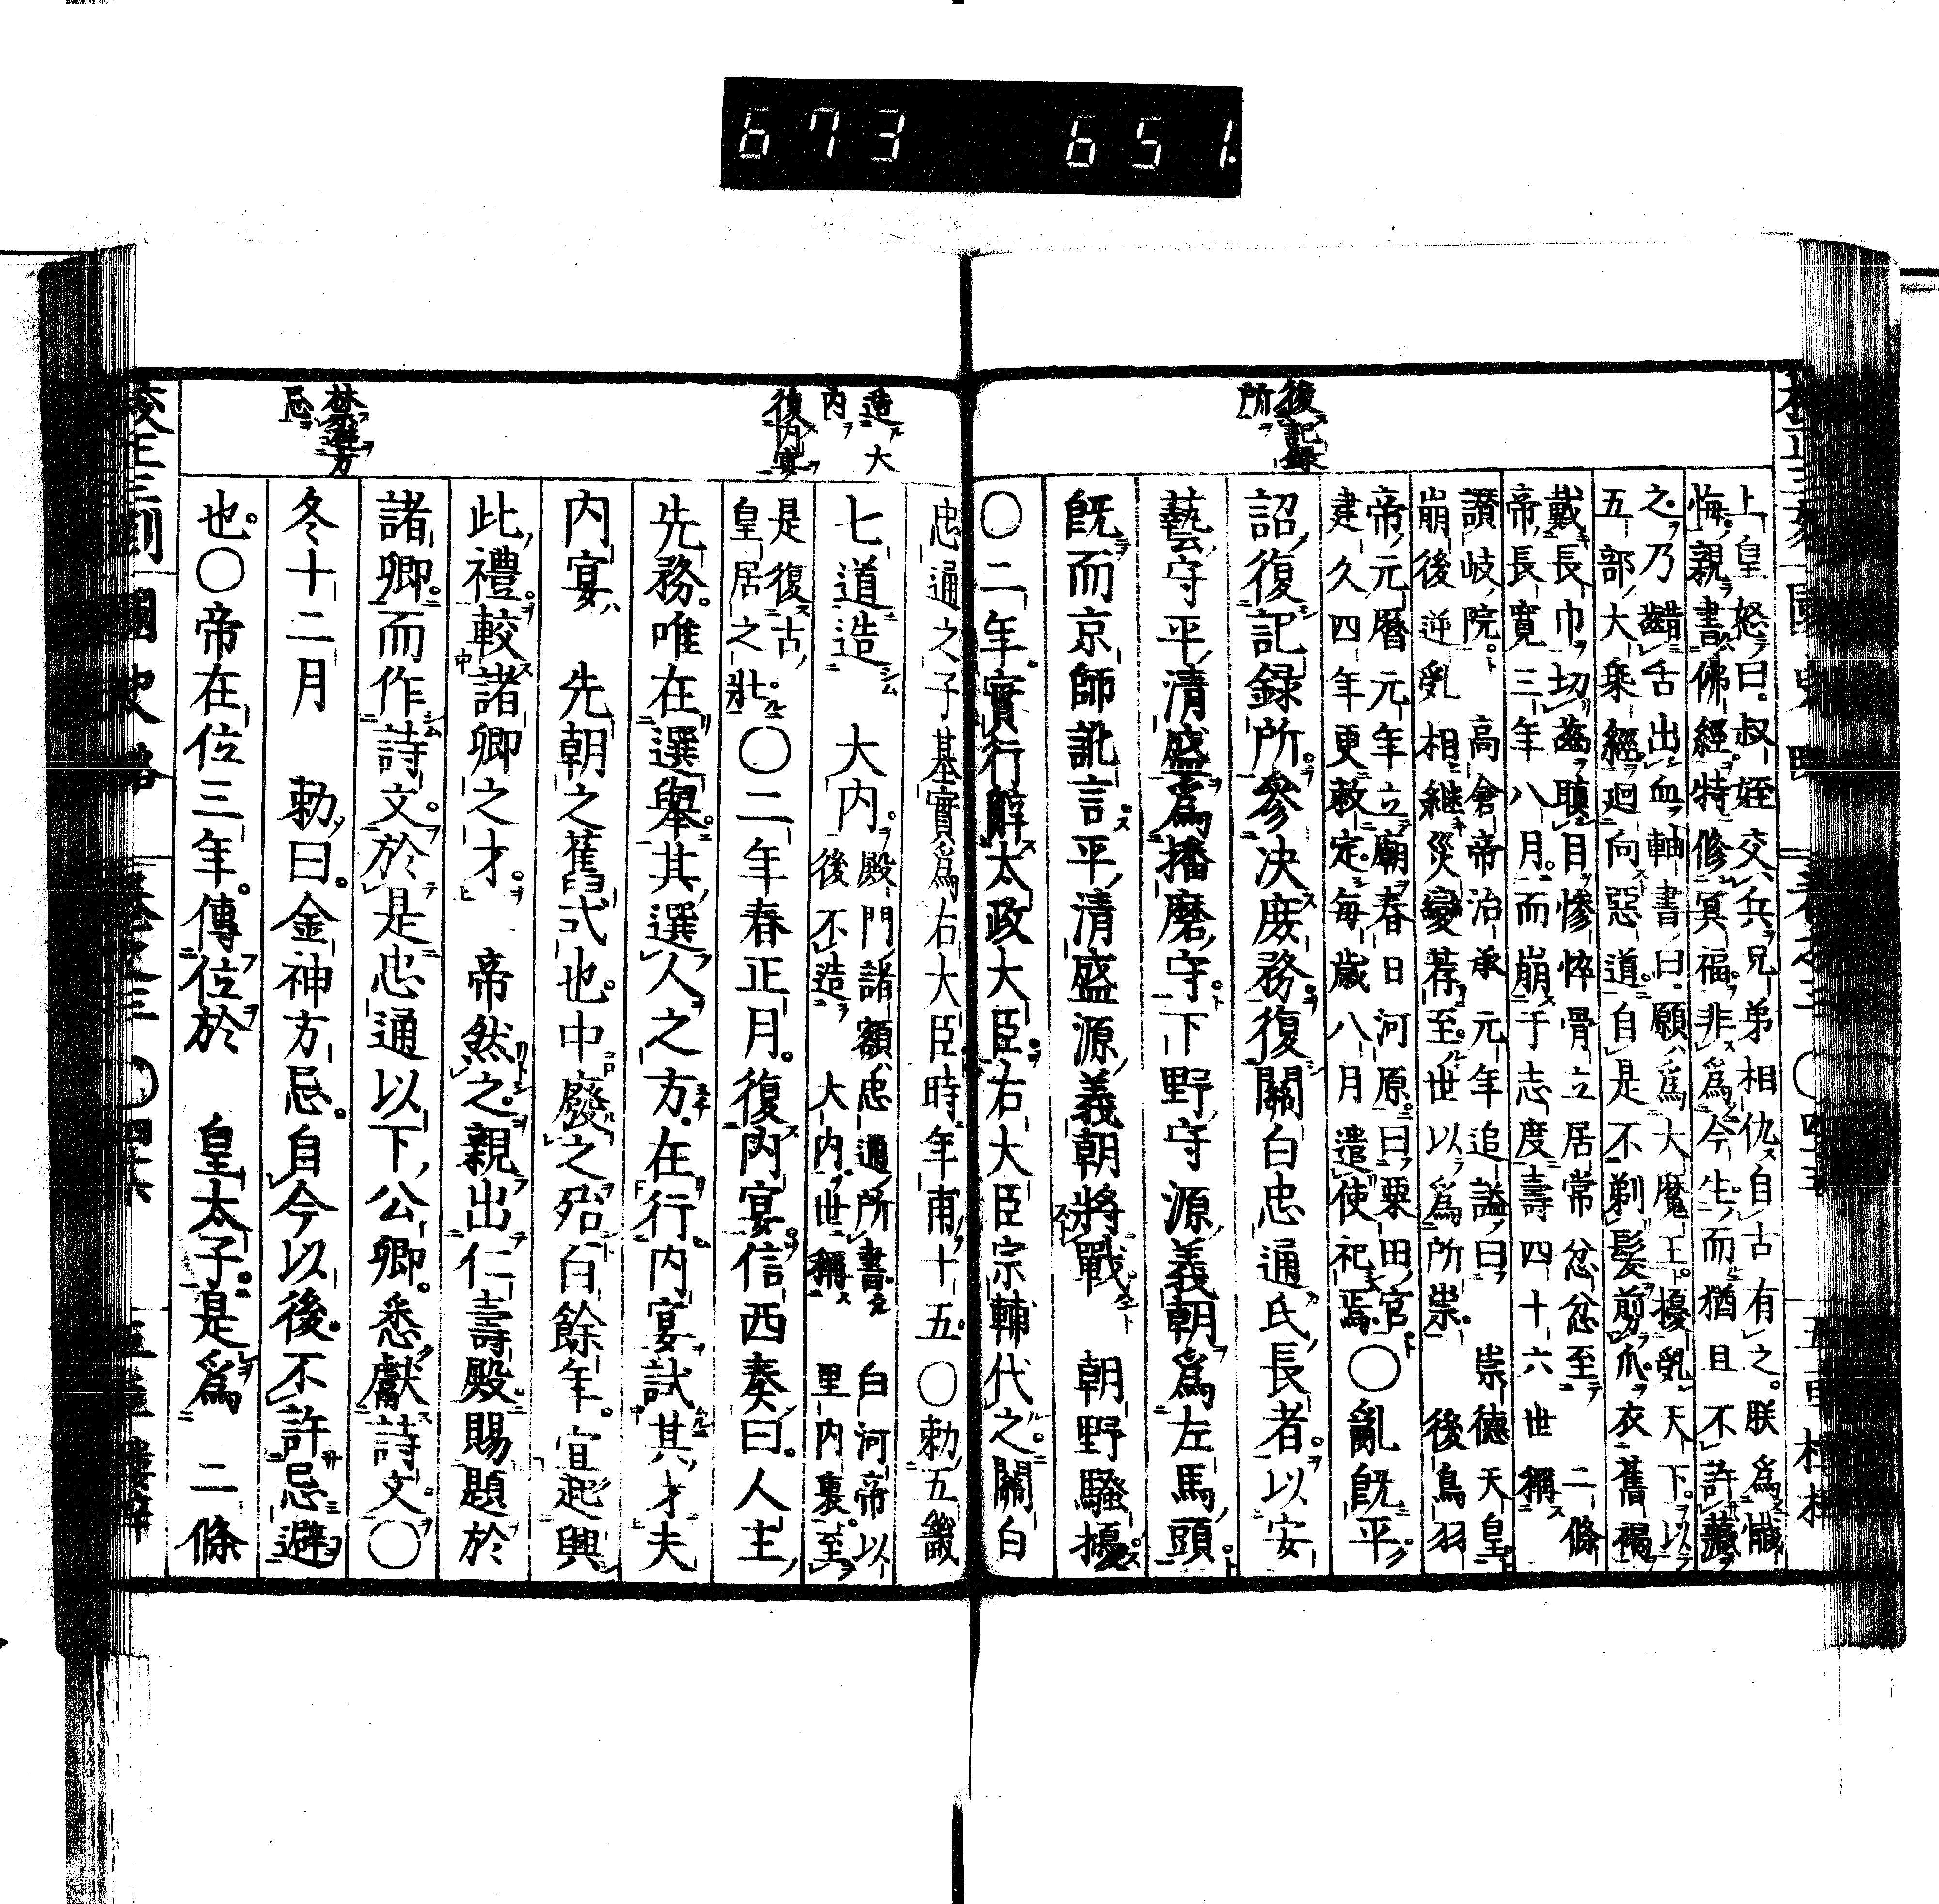 673 651.
國史略
卷之三 〇四十五
五車樓梓
復記錄
所
上皇怒曰。叔姪交兵。兄弟相仇。自古有之。朕爲懺
悔。親書佛經。特修冥福。非爲今生。而猶且不許藏
之。乃齰舌出血。軸書曰。願爲大魔王。擾亂天下。以
五部大乘經。廻向惡道。自是不剃髮剪爪。衣舊褐
戴長巾。切齒瞋目。慘悴骨立。居常忿忿至 二條
帝長寬三年八月。而崩于志度。壽四十六。世稱
讚岐院。 高倉帝治承元年追謚曰 崇德天皇。
崩後逆亂相繼。災變荐至。世以爲所祟。 後鳥羽
帝元曆元年立廟春日河原。曰粟田宮。
建久四年更敕定。每歲八月遣使祀焉。〇亂既平。
詔復記録所。參決庶務。復關白忠通氏長者。以安
藝守平清盛爲播磨守。下野守源義朝爲左馬頭。
既而京師訛言。平清盛源義朝將戰。 朝野騷擾。
〇二年。實行辭太政大臣。右大臣宗輔代之。關白
造大
內
復內宴
禁避方
忌
忠通之子基實爲右大臣。時年甫十五。〇勅五畿
七道造 大內。殿門諸額。忠通所書。 白河帝以
後不造 大內。世稱 里內裏。至
是復古。
皇居之壯。〇二年春正月。復內宴。信西奏曰。人主
先務。唯在選舉。其選人之方。在行內宴試其才。夫
內宴 先朝之舊式也。中廢之。殆百餘年。宜起興
此禮。較諸卿之才。 帝然之。親出仁壽殿。賜題於
諸卿。而作詩文。於是忠通以下公卿。悉獻詩文。〇
冬十二月 勅曰。金神方忌。自今以後。不許忌避
也。〇帝在位三年。傳位於 皇太子。是爲 二條
國史略
卷之三 〇四十六
五車樓梓